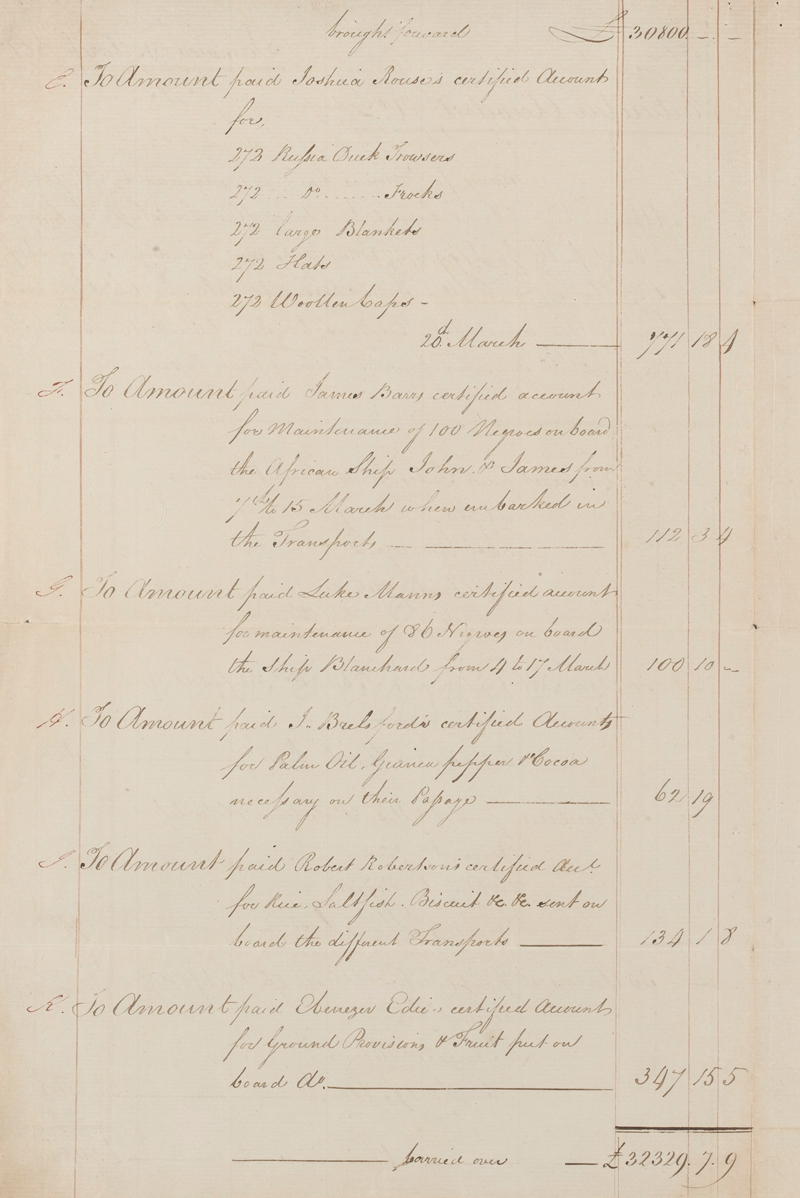 brought forward £ 30800 – –
E. To Amount paid Joshua Rouse's certified Account
for,
272 Russia Duck Trowsers
272 Do Frocks
272 large Blankets
272 Hats
272 Woollen Caps –
20th March 771 18 4
F. To Amount paid James Barrs certified account
for Maintenance of 100 Negroes on board
the African Ship John & James from
7th to 15 March when embarked in
the Transports 112 3 4
G. To Amount paid Luke Manns certified account
for maintenance of 86 Negroes on board
the Ship Blanchard from 4 to 17 March 100 10 –
H. To Amount paid J. Brelsford's certified Accounts
for Palm Oil, Guinea pepper & Cocoa
necessary on their Passage 62 19
I. To Amount paid Robert Robertson's certified Acct.
for Rice. Saltfish. Biscuit &c. &c. sent on
board the different Transports 134 1 8
K. To Amount paid Ebenezer Edie's certified Account
for Ground Provisions & Fruit put on
board Do. 347 15 5
carried over £ 32329. 7. 9